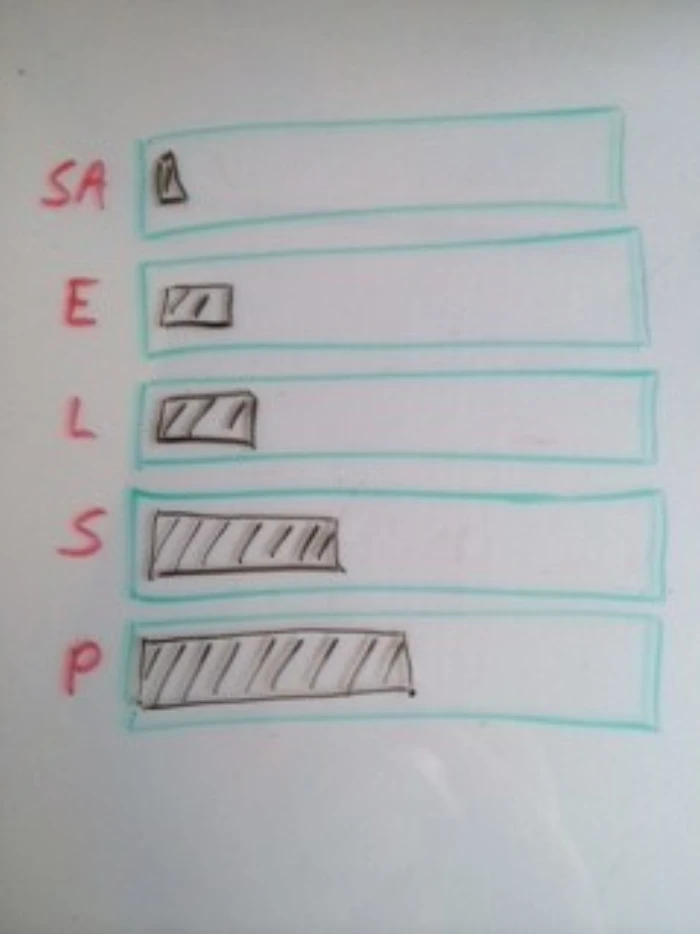 SA
E
L
S
P